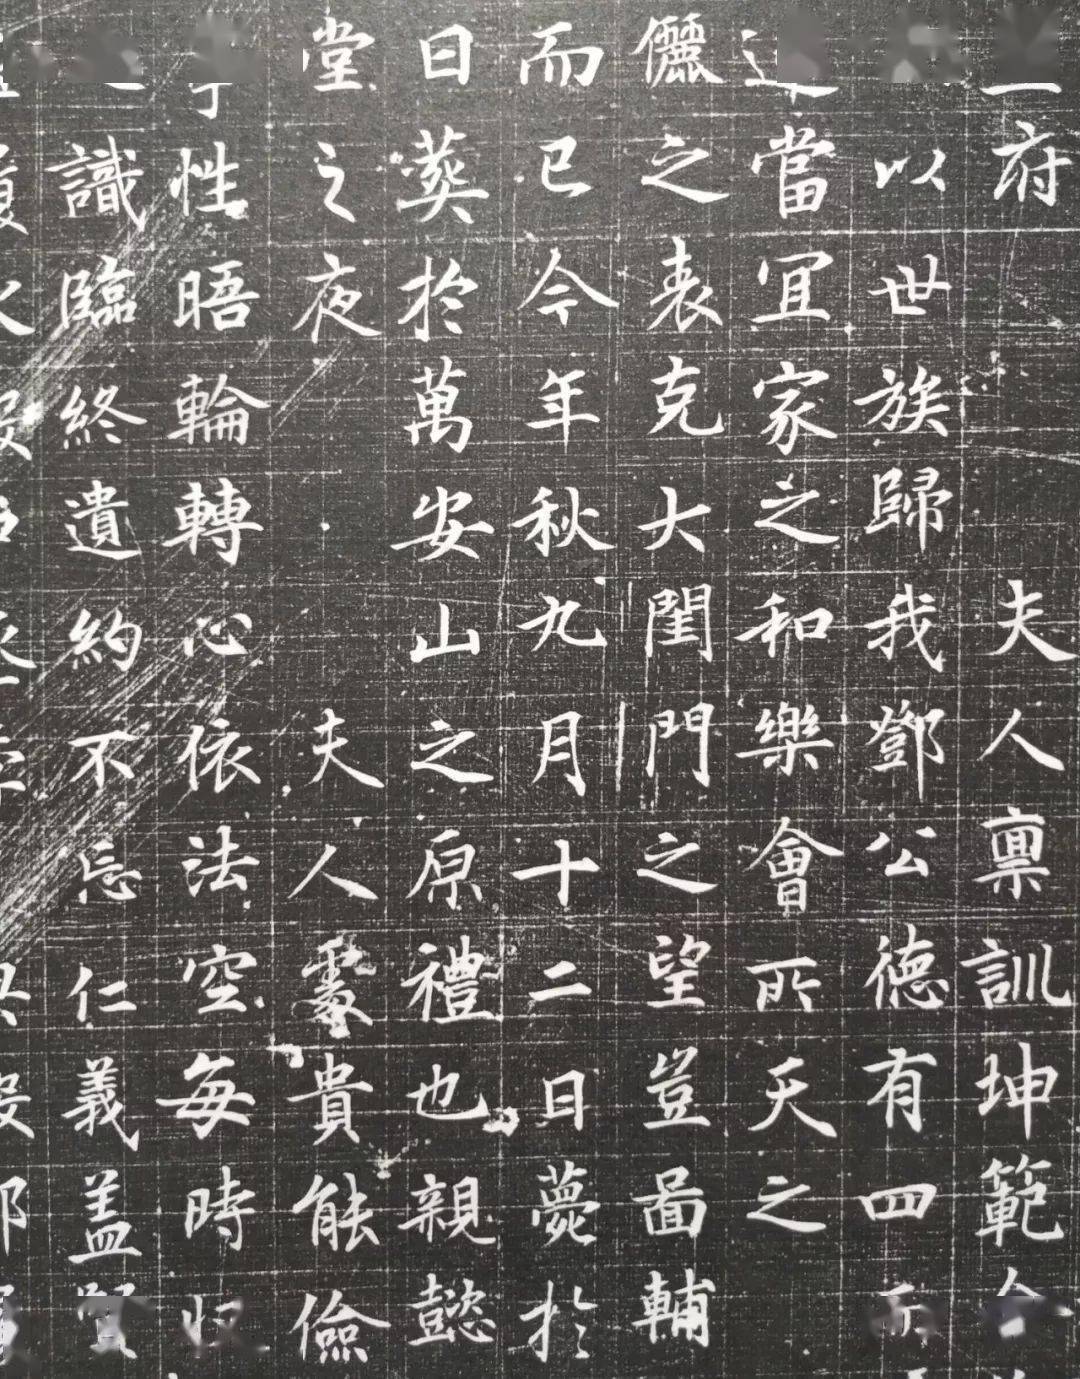 府夫人禀訓坤範
以世族歸我鄧公德有四
當宜家之和樂會所天之
儷之表克大閨門之望豈啚輔
而已今年秋九月十二日薨於
日葬於萬安山之原禮也親懿
堂之夜夫人處貴能儉
性晤輪轉心依法空每時
識臨終遺約不忘仁義盖